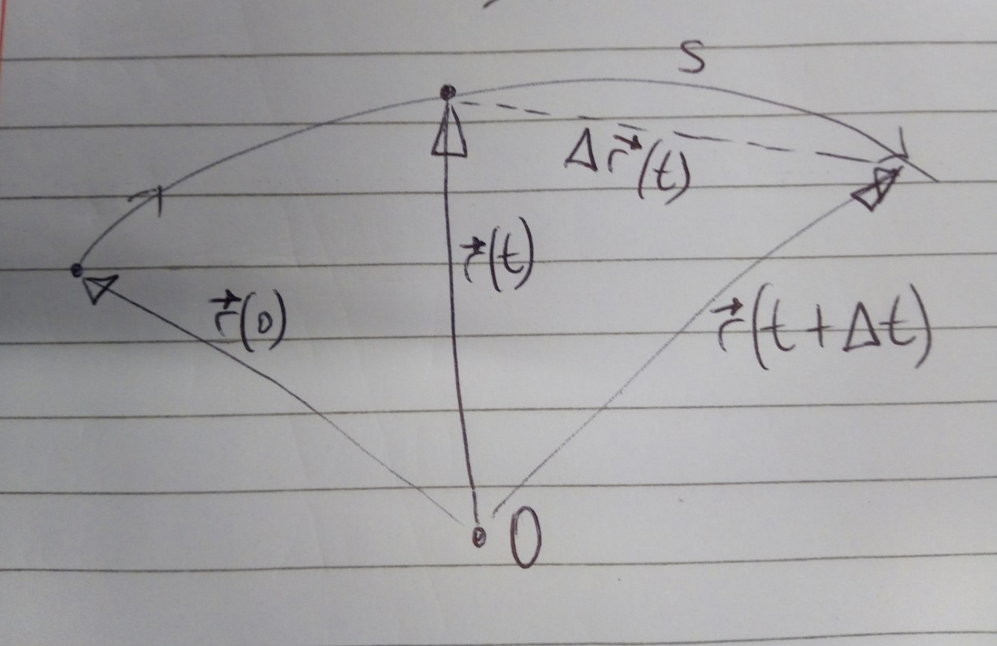 S
Δr⃗(t)
r⃗(t)
r⃗(0)
r⃗(t+Δt)
O